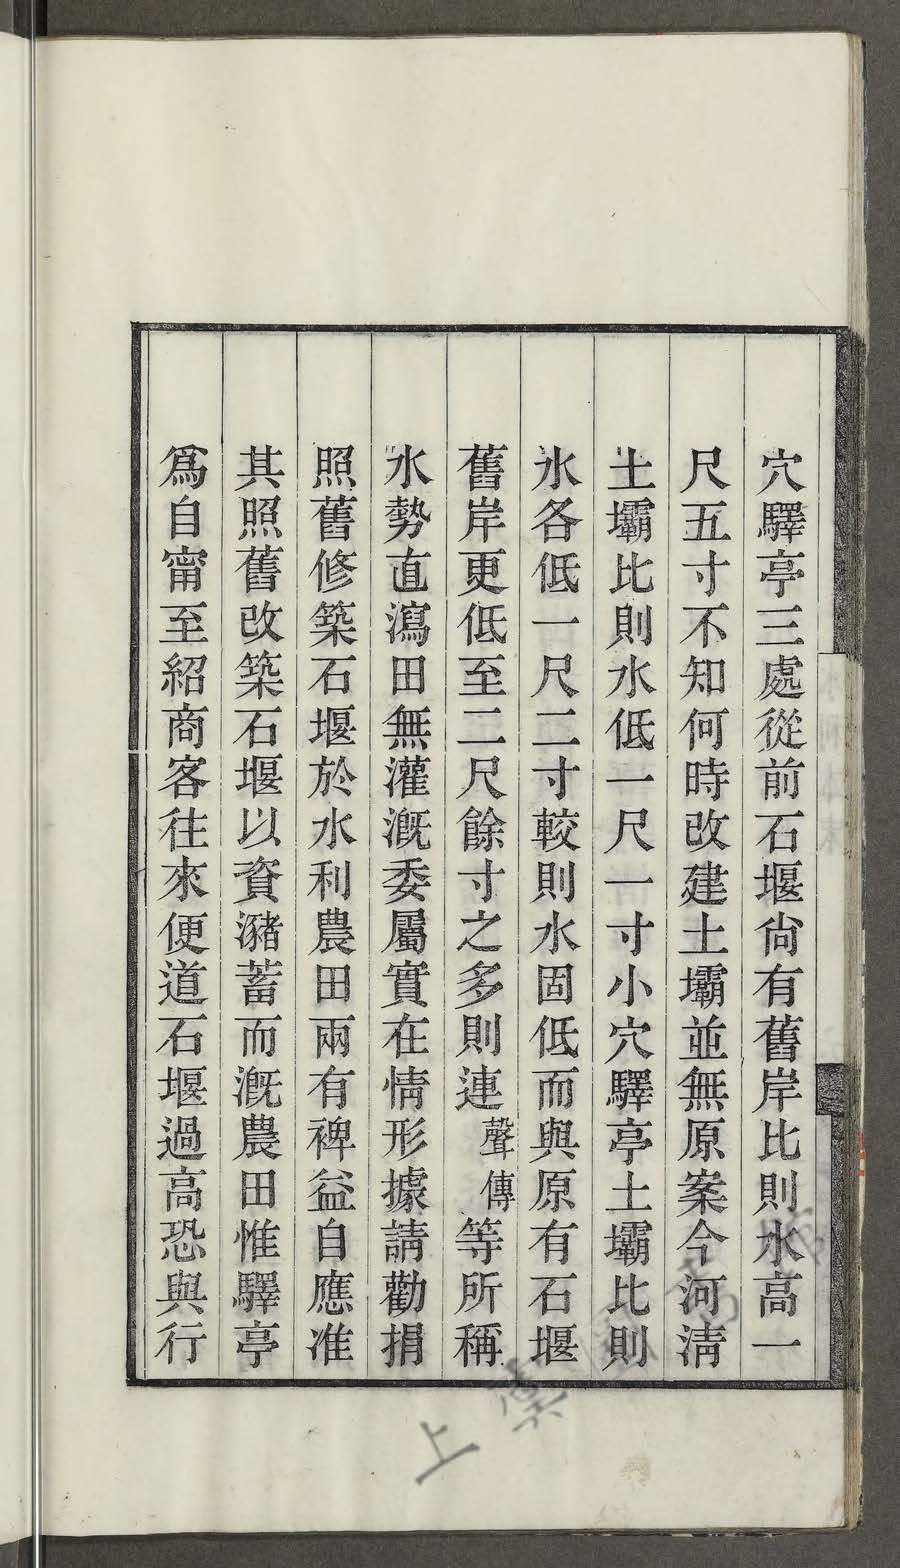 穴驛亭三處從前石堰尙有舊岸比則水高一
尺五寸不知何時改建土壩並無原案今河淸
土壩比則水低一尺一寸小穴驛亭土壩比則
水各低一尺二寸較則水固低而與原有石堰
舊岸更低至二尺餘寸之多則連聲傳等所稱
水勢直瀉田無灌漑委屬實在情形據請勸捐
照舊修築石堰於水利農田兩有裨益自應准
其照舊改築石堰以資瀦蓄而漑農田惟驛亭
爲自甯至紹商客往來便道石堰過高恐與行